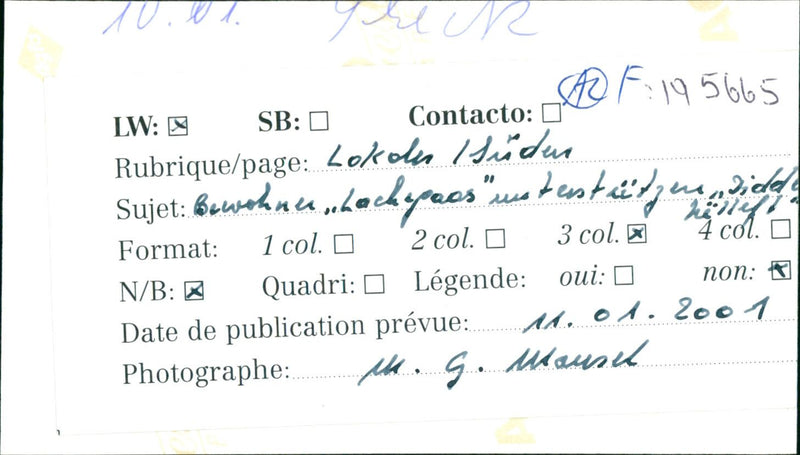 10.01.
F: 195665
LW: ☒ SB: ☐ Contacto: ☐
Rubrique/page: Lokales / Süden
Sujet: Bewohner „Lackepaas" unterstützen „Didde
hëlleft"
Format: 1 col. ☐ 2 col. ☐ 3 col. ☒ 4 col. ☐
N/B: ☒ Quadri: ☐ Légende: oui: ☐ non: ☒
Date de publication prévue: 11.01.2001
Photographe: M. G.